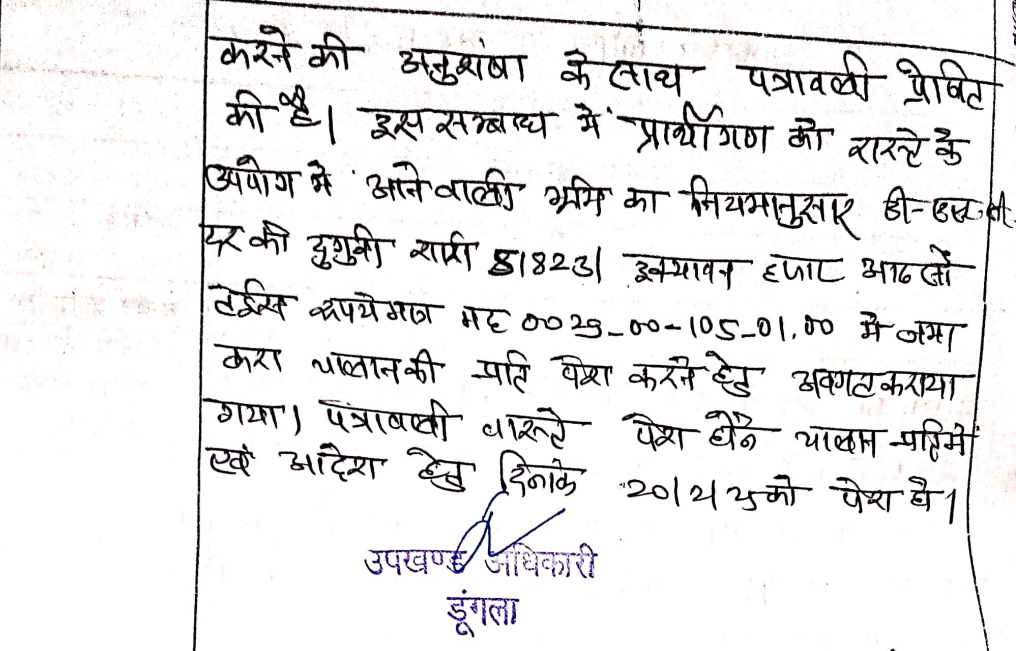 करने की अनुशंषा के साथ पत्रावली प्रेषित
की है। इस सम्बन्ध में प्रार्थीगण को रास्ते के
उपयोग में आने वाली भूमि का नियमानुसार डी-एल.सी.
दर की दुगुनी राशी 51823/ इक्यावन हजार आठ सौ
तेईस रूपये मात्र मद 0029-00-105-01.00 में जमा
करा चालान की प्रति पेश करने हेतु अवगत कराया
गया। पत्रावली वास्ते पेश होने चालान प्रति में
एवं आदेश हेतु दिनांक को पेश हो।
उपखण्ड अधिकारी
डूंगला